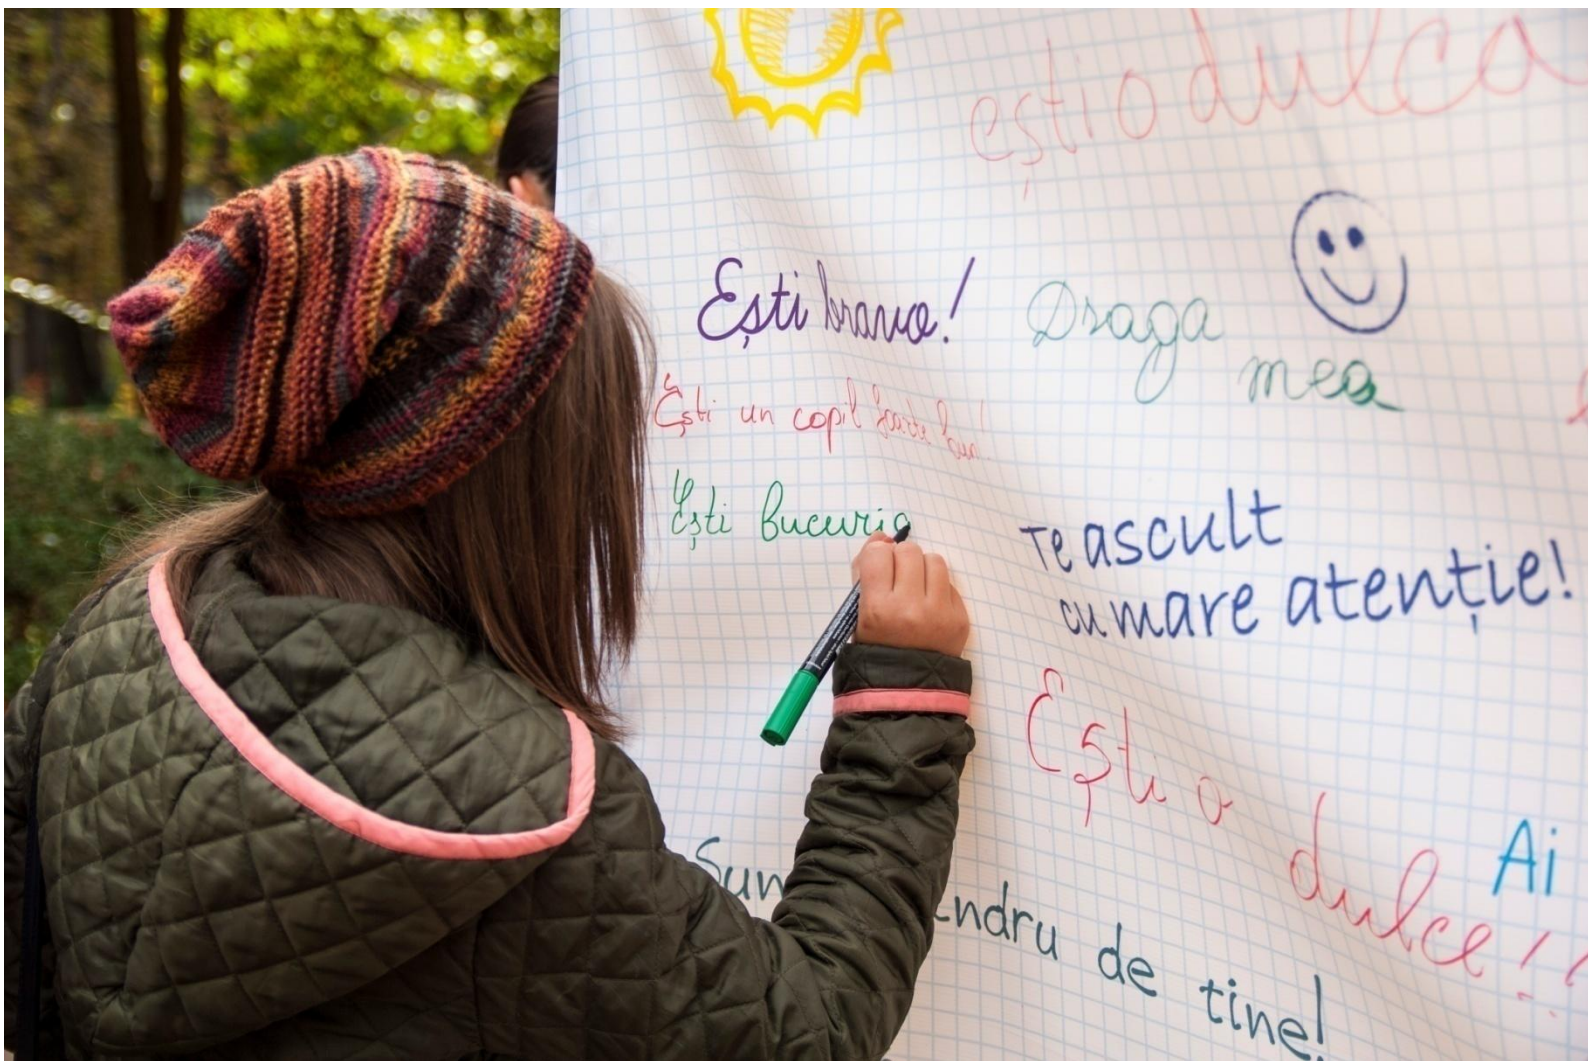 ești o dulca
Ești bravo!
Draga
mea
Ești un copil foarte bun!
Ești bucuria
Te ascult
cu mare atenție!
Ești o
dulce!!
Ai
Sun ndru de tine!